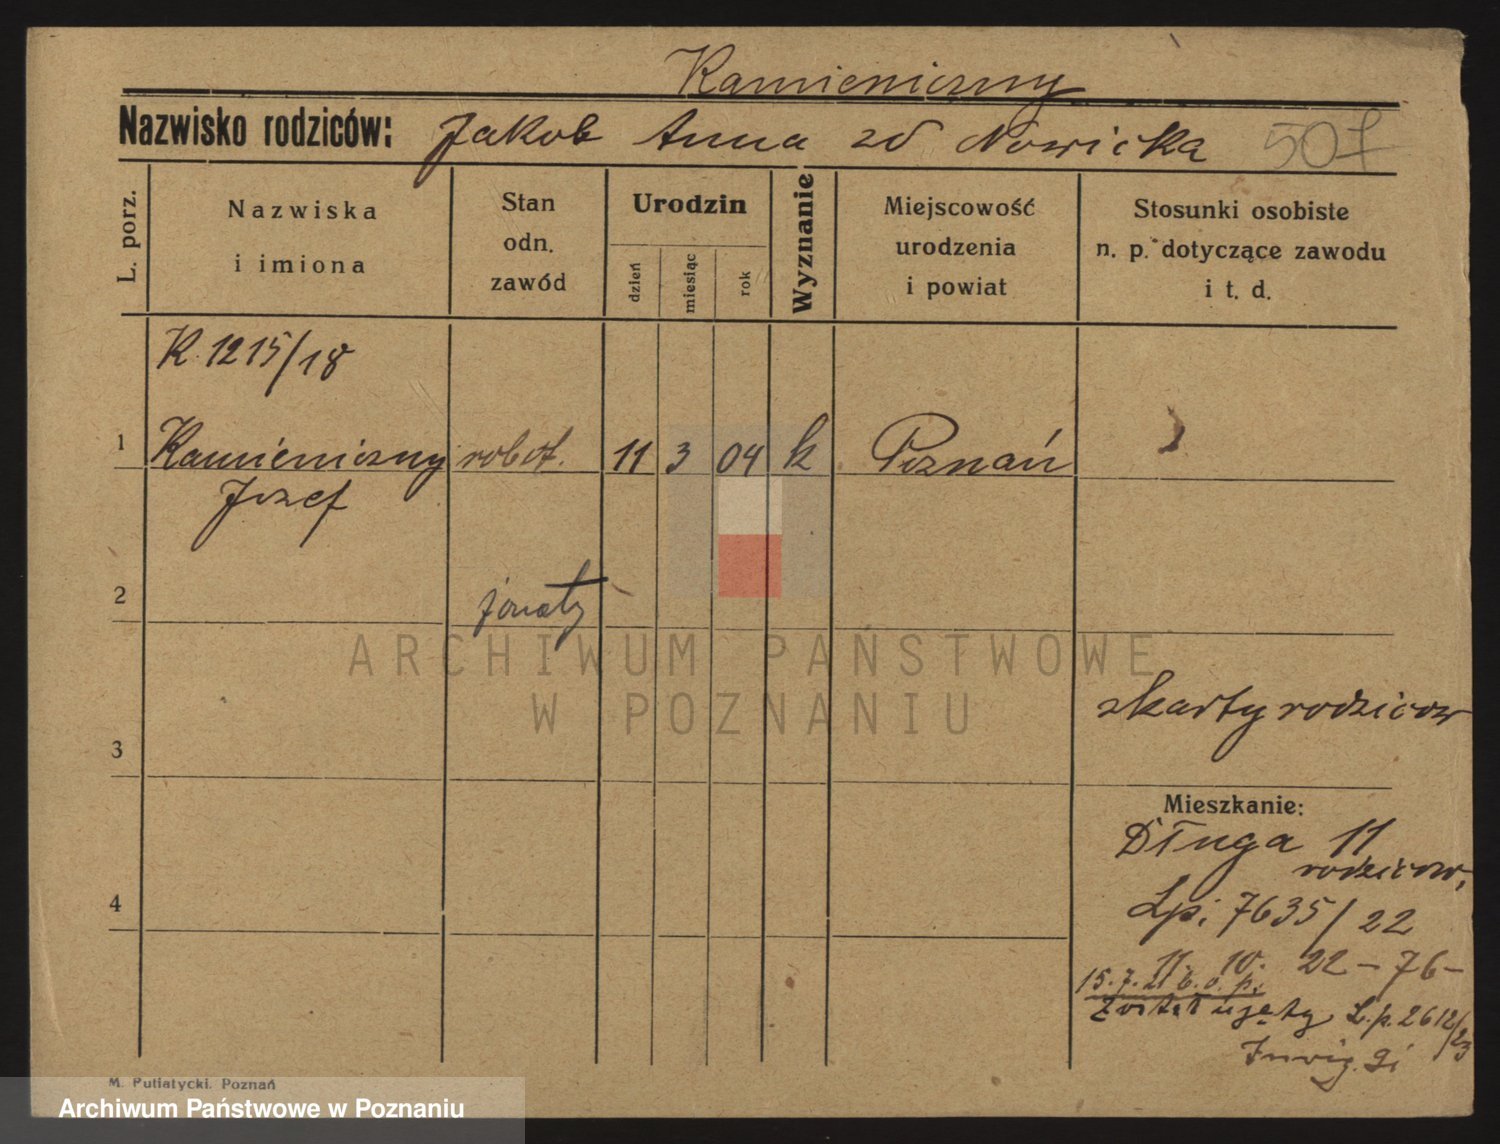 Kamieniczny
Nazwisko rodziców: Jakob Anna zd Nowicka 507
L. porz.
Nazwiska
i imiona
Stan
odn.
zawód
Urodzin
dzień
miesiąc
rok
Wyznanie
Miejscowość
urodzenia
i powiat
Stosunki osobiste
n. p. dotyczące zawodu
i t. d.
K. 1215/18
1 Kamieniczny robot. 11 3 04 k Poznań
Jozef
2
ARCHIWUM PAŃSTWOWE
W POZNANIU
z karty rodzicow
3
Mieszkanie:
Długa 11
rodzicow.
4
Lp. 7635/22
11. 10. 22 – 76 –
15. 7. 21 b. o. p.
Został ujęty L. p. 2612/23
Inwig.
M. Putiatycki. Poznań
Archiwum Państwowe w Poznaniu